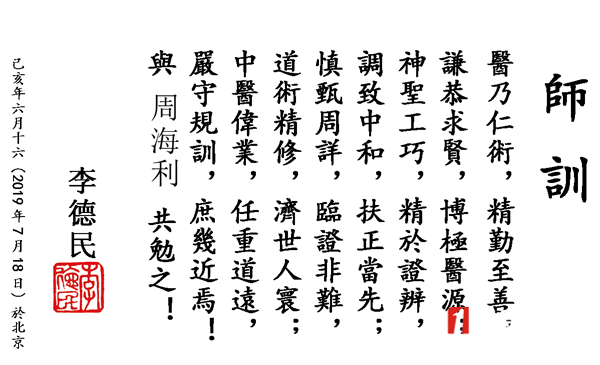 師訓
醫乃仁術，精勤至善，
謙恭求賢，博極醫源；
神聖工巧，精於證辨，
調致中和，扶正當先；
慎甄周詳，臨證非難，
道術精修，濟世人寰；
中醫偉業，任重道遠，
嚴守規訓，庶幾近焉！
與 周海利 共勉之！
李德民
李德民
己亥年六月十六（2019年7月18日）於北京